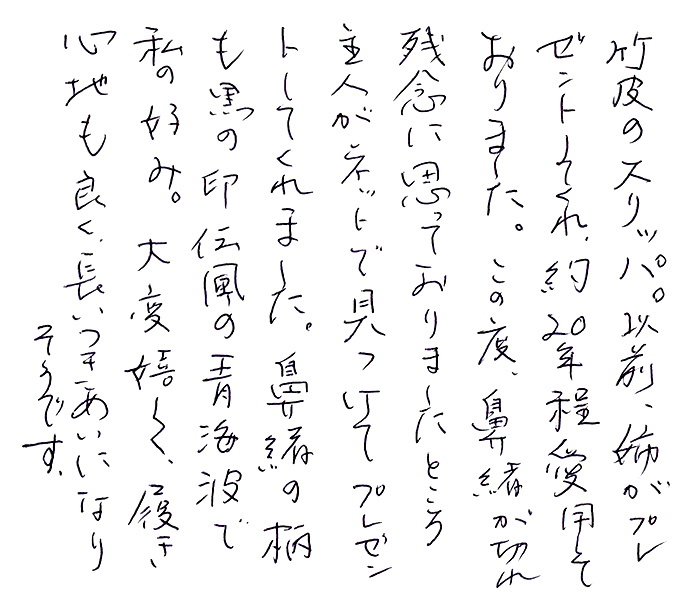 竹皮のスリッパ。以前、姉がプレ
ゼントしてくれ、約20年程愛用して
おりました。この度、鼻緒が切れ
残念に思っておりましたところ
主人がネットで見つけてプレゼン
トしてくれました。鼻緒の柄
も黒の印伝風の青海波で
私の好み。大変嬉しく、履き
心地も良く、長いつきあいになり
そうです。